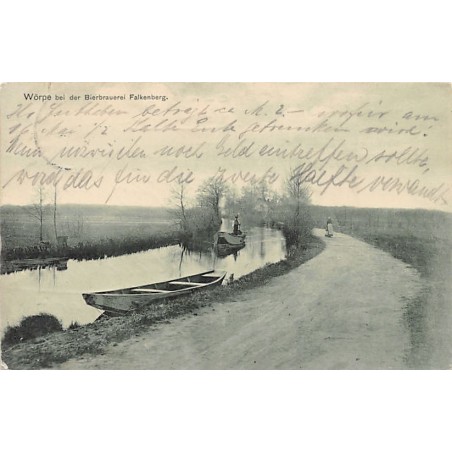 Wörpe bei der Bierbrauerei Falkenberg.
beträgt ca M. 2 – wofür am
16 Mai 1/2 getrunken wird.
inzwischen noch Geld eintreffen sollte,
wird das für die zweite Hälfte verwandt